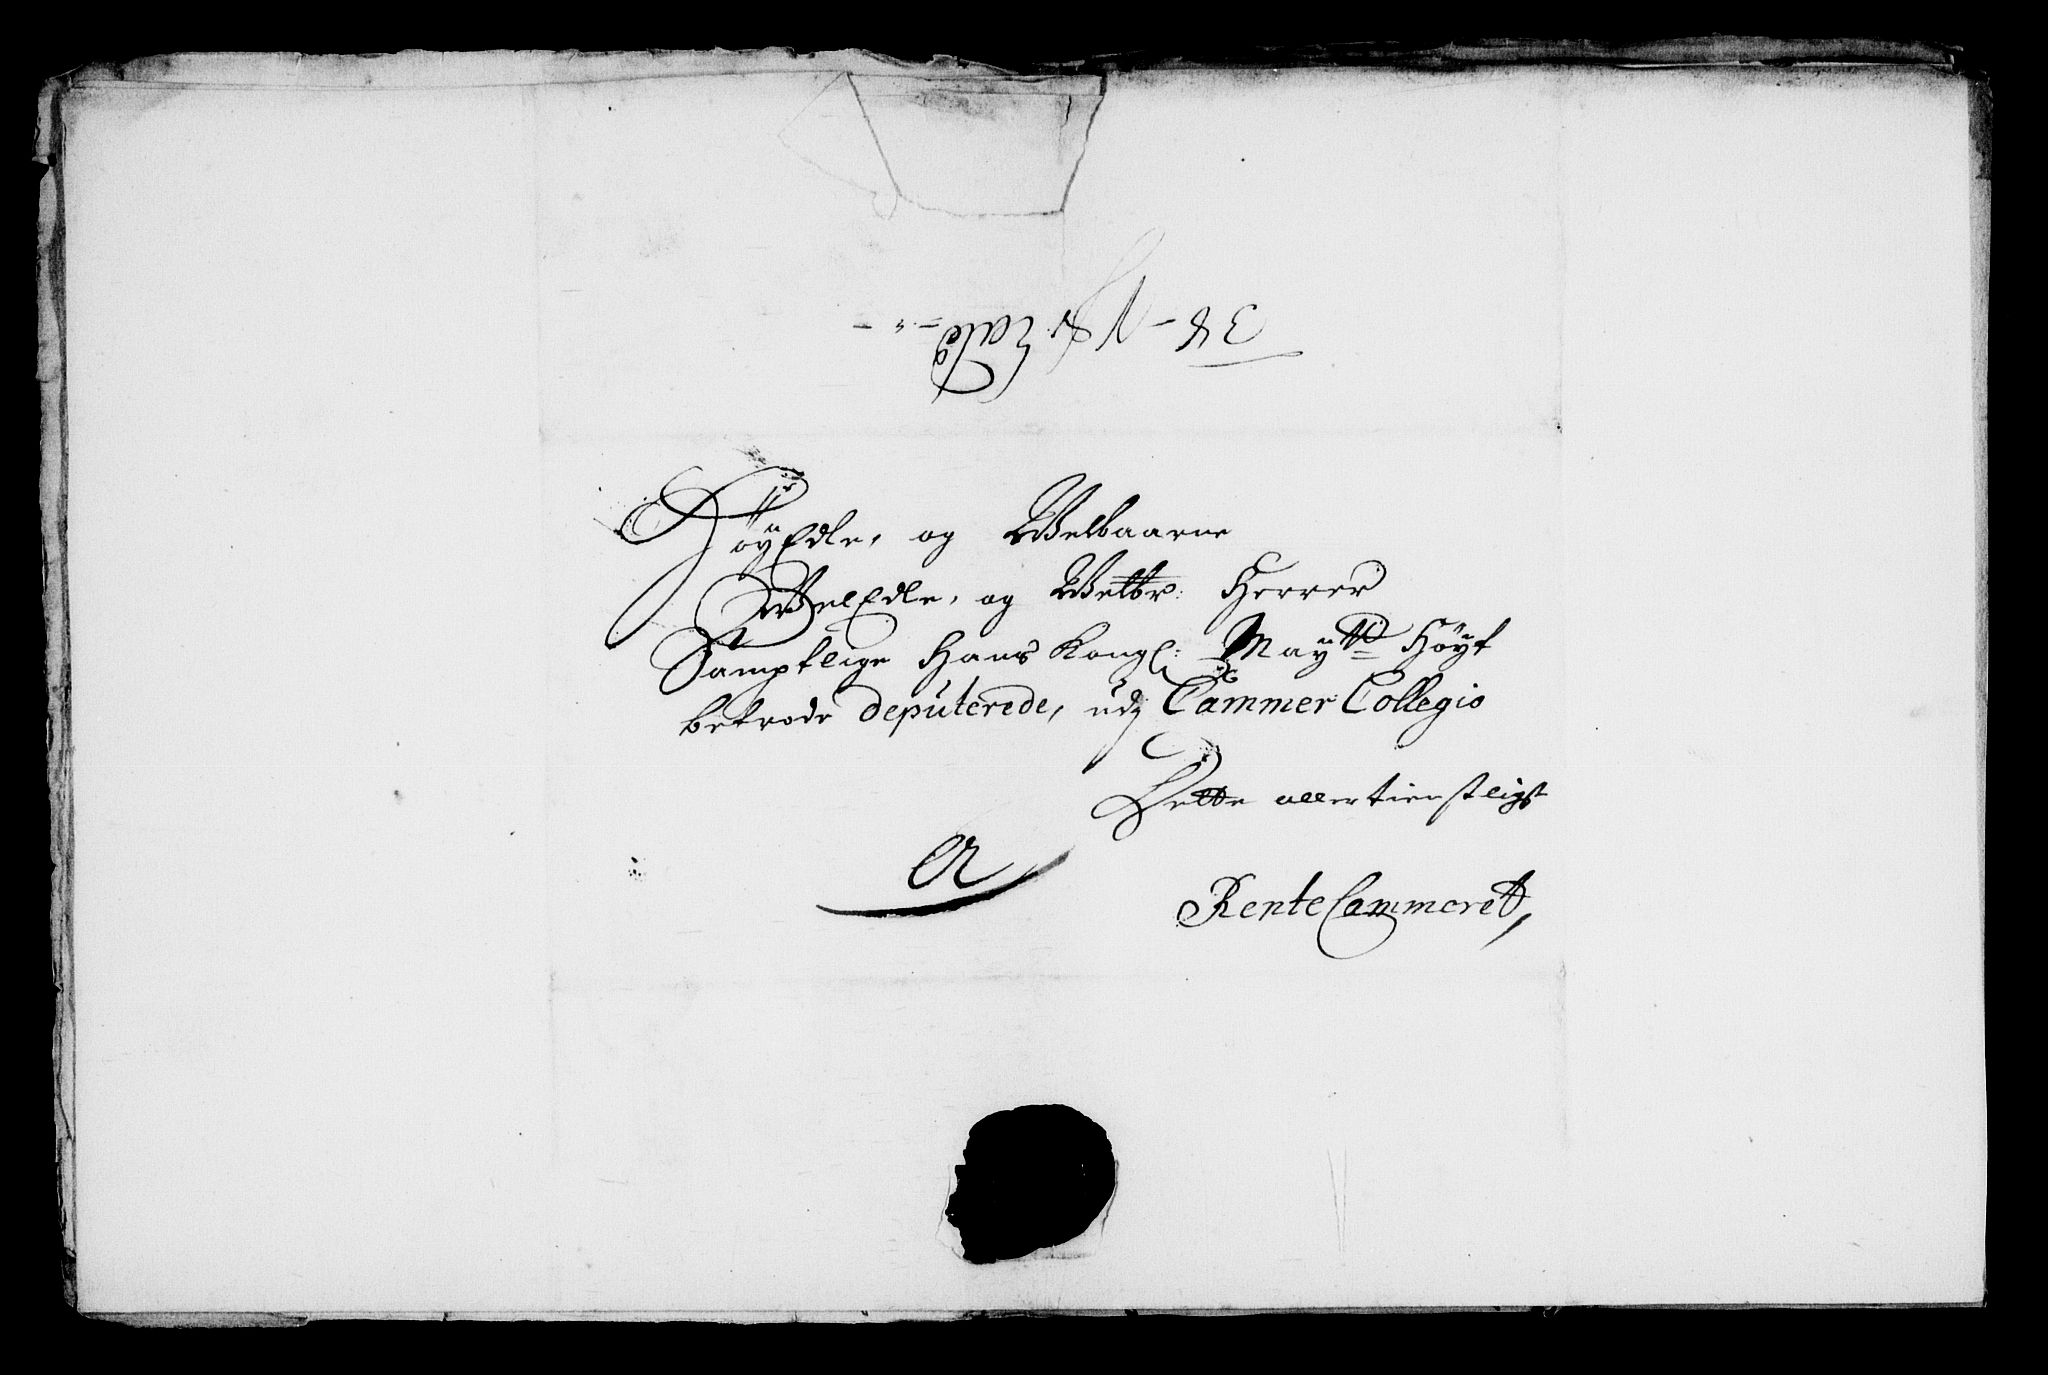 HöyEdle, og Welbaarne
WelEdle, og Welbr: Herrer
Samptlige Hans Kongl: Mayttz Höyt
betrode deputerede, udj Cammer Collegio
Dette allertienstligst
A
RenteCammeret,